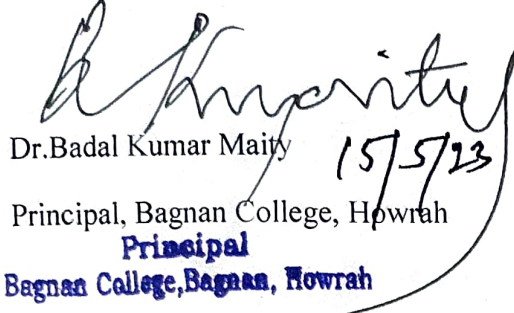 Dr.Badal Kumar Maity
15/5/23
Principal, Bagnan College, Howrah
Principal
Bagnan College,Bagnan, Howrah